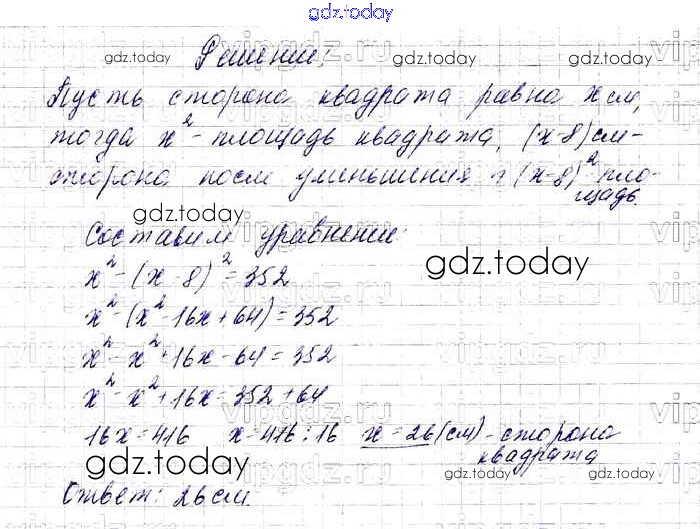 gdz.today
gdz.today Решение: gdz.today
Пусть сторона квадрата равна x см,
тогда x² - площадь квадрата, (x-8) см -
сторона после уменьшения, (x-8)² пло-
щадь.
gdz.today
Составим уравнение:
x² - (x - 8)² = 352
gdz.today
x² - (x² - 16x + 64) = 352
x² - x² + 16x - 64 = 352
x² - x² + 16x = 352 + 64
16x = 416 x = 416 : 16 x = 26 (см) - сторона
квадрата
gdz.today gdz.today
Ответ: 26 см.
vipgdz.ru